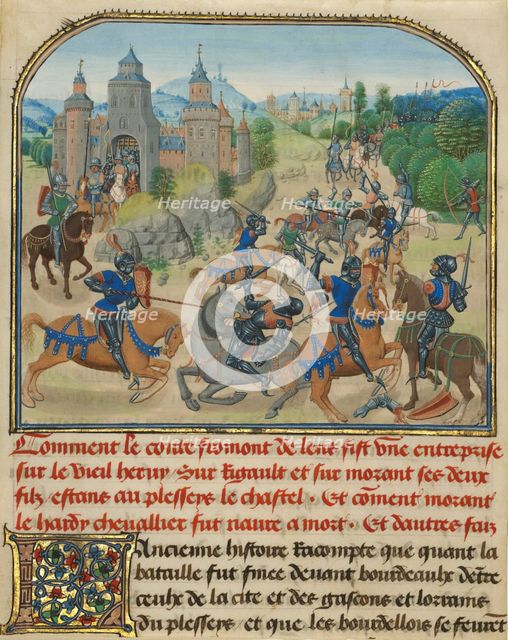 Heritage Heritage
Heritage Heritage
Heritage Heritage
Comment le conte fromont de lens fist vne entreprise
sur le vieil heruy / Sur Rigault et sur morant ses deux
filz / estans au plesseys le chastel · Et cōment morant
le hardy cheuallier fut naure a mort · Et dautres faiz
Ancienne histoire Racompte que quant la
bataille fut finee deuant bourdeaulx dētre
ceulx de la cite et des gascons et lorrains
du plesseys et que les bourdellois se feurēt